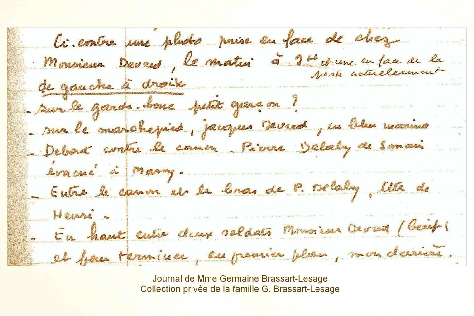 Ci-contre une photo prise en face de chez
Monsieur Devred, le matin à 9H et une en face de la
poste actuellement
de gauche à droite
- sur le garde-boue petit garçon ?
- sur le marchepied, Jacques Devred, en bleu marine
- Debout contre le camion Pierre Delaby de Somain
évacué à Marcy.
- Entre le canon et le bras de P. Delaby, tête de
Henri.
- En haut entre deux soldats Monsieur Devred
et pour terminer, au premier plan, mon derrière.
Journal de Mme Germaine Brassart-Lesage
Collection privée de la famille G. Brassart-Lesage